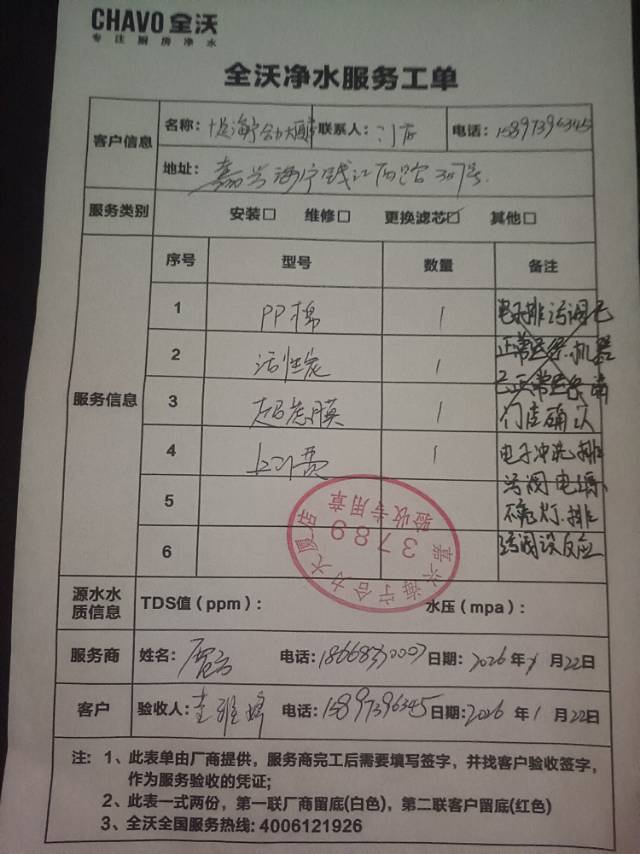 CHAVO 全沃
专注厨房净水
全沃净水服务工单
客户信息 名称: 海宁合力大厦店 联系人: 门店 电话: 15897396345
地址: 嘉兴海宁钱江西路307号
服务类别 安装□ 维修□ 更换滤芯☑ 其他□
服务信息
序号 型号 数量 备注
1 PP棉 1
2 活性炭 1
3 超滤膜 1
4 上门费 1
5
6
电子排污阀已
正常更换.机器
已正常更换 请
门店确认
电子冲洗排
污阀电源
不亮灯.排
污阀没反应
嘉兴海宁合力大厦店
3789
验收专用章
源水水质信息 TDS值（ppm）: 水压（mpa）:
服务商 姓名: 电话: 18668370007 日期: 2026年1月22日
客户 验收人: 电话: 15897396345 日期: 2026年1月22日
注: 1、此表单由厂商提供，服务商完工后需要填写签字，并找客户验收签字，
作为服务验收的凭证;
2、此表一式两份，第一联厂商留底(白色)，第二联客户留底(红色)
3、全沃全国服务热线: 4006121926